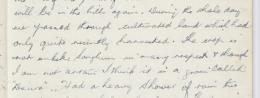 will be in the hills again. During the whole day
we passed through cultivated land which had
only quite recently harvested. The crop is
not unlike Sorghum in every respect & though
I am not certain I think it is a grain called
Had a heavy shower of rain this